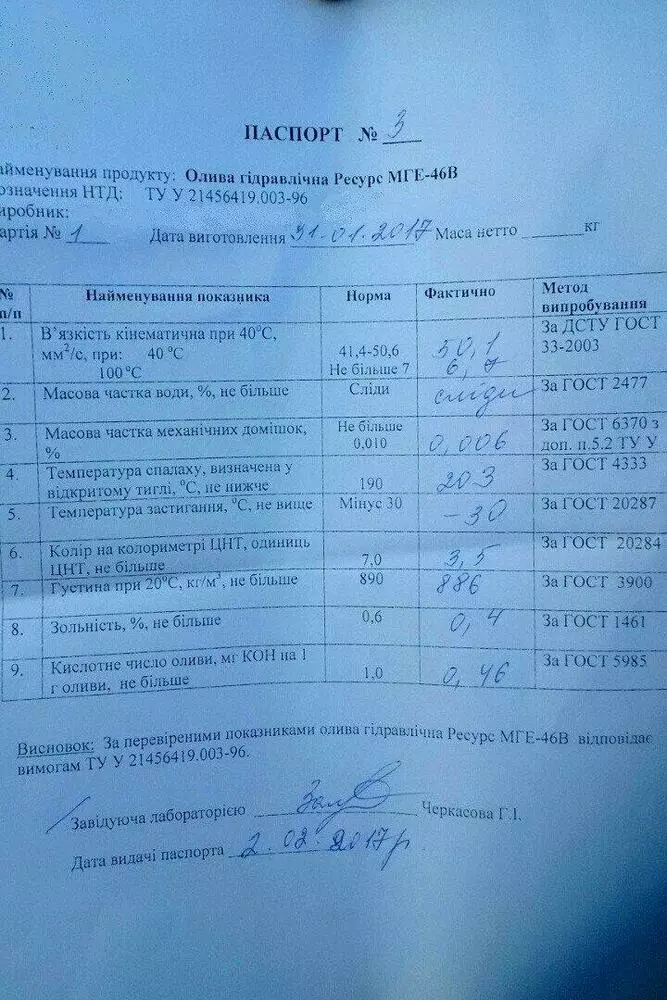 ПАСПОРТ № 3
айменування продукту: Олива гідравлічна Ресурс МГЕ-46В
означення НТД: ТУ У 21456419.003-96
иробник:
артія № 1 Дата виготовлення 31.01.2017 Маса нетто ______ кг
№ п/п Найменування показника Норма Фактично Метод випробування
1. В’язкість кінематична при 40°С, За ДСТУ ГОСТ
мм²/с, при: 40 °С 41,4-50,6 50,1 33-2003
100 °С Не більше 7 6,7
2. Масова частка води, %, не більше Сліди сліди За ГОСТ 2477
3. Масова частка механічних домішок, Не більше За ГОСТ 6370 з
% 0,010 0,006 доп. п.5.2 ТУ У
4. Температура спалаху, визначена у За ГОСТ 4333
відкритому тиглі, °С, не нижче 190 203
5. Температура застигання, °С, не вище Мінус 30 -30 За ГОСТ 20287
6. Колір на колориметрі ЦНТ, одиниць За ГОСТ 20284
ЦНТ, не більше 7,0 3,5
7. Густина при 20°С, кг/м³, не більше 890 886 За ГОСТ 3900
8. Зольність, %, не більше 0,6 0,4 За ГОСТ 1461
9. Кислотне число оливи, мг КОН на 1 За ГОСТ 5985
г оливи, не більше 1,0 0,46
Висновок: За перевіреними показниками олива гідравлічна Ресурс МГЕ-46В відповідає
вимогам ТУ У 21456419.003-96.
Завідуюча лабораторією Черкасова Г.І.
Дата видачі паспорта 2.02.2017 р.